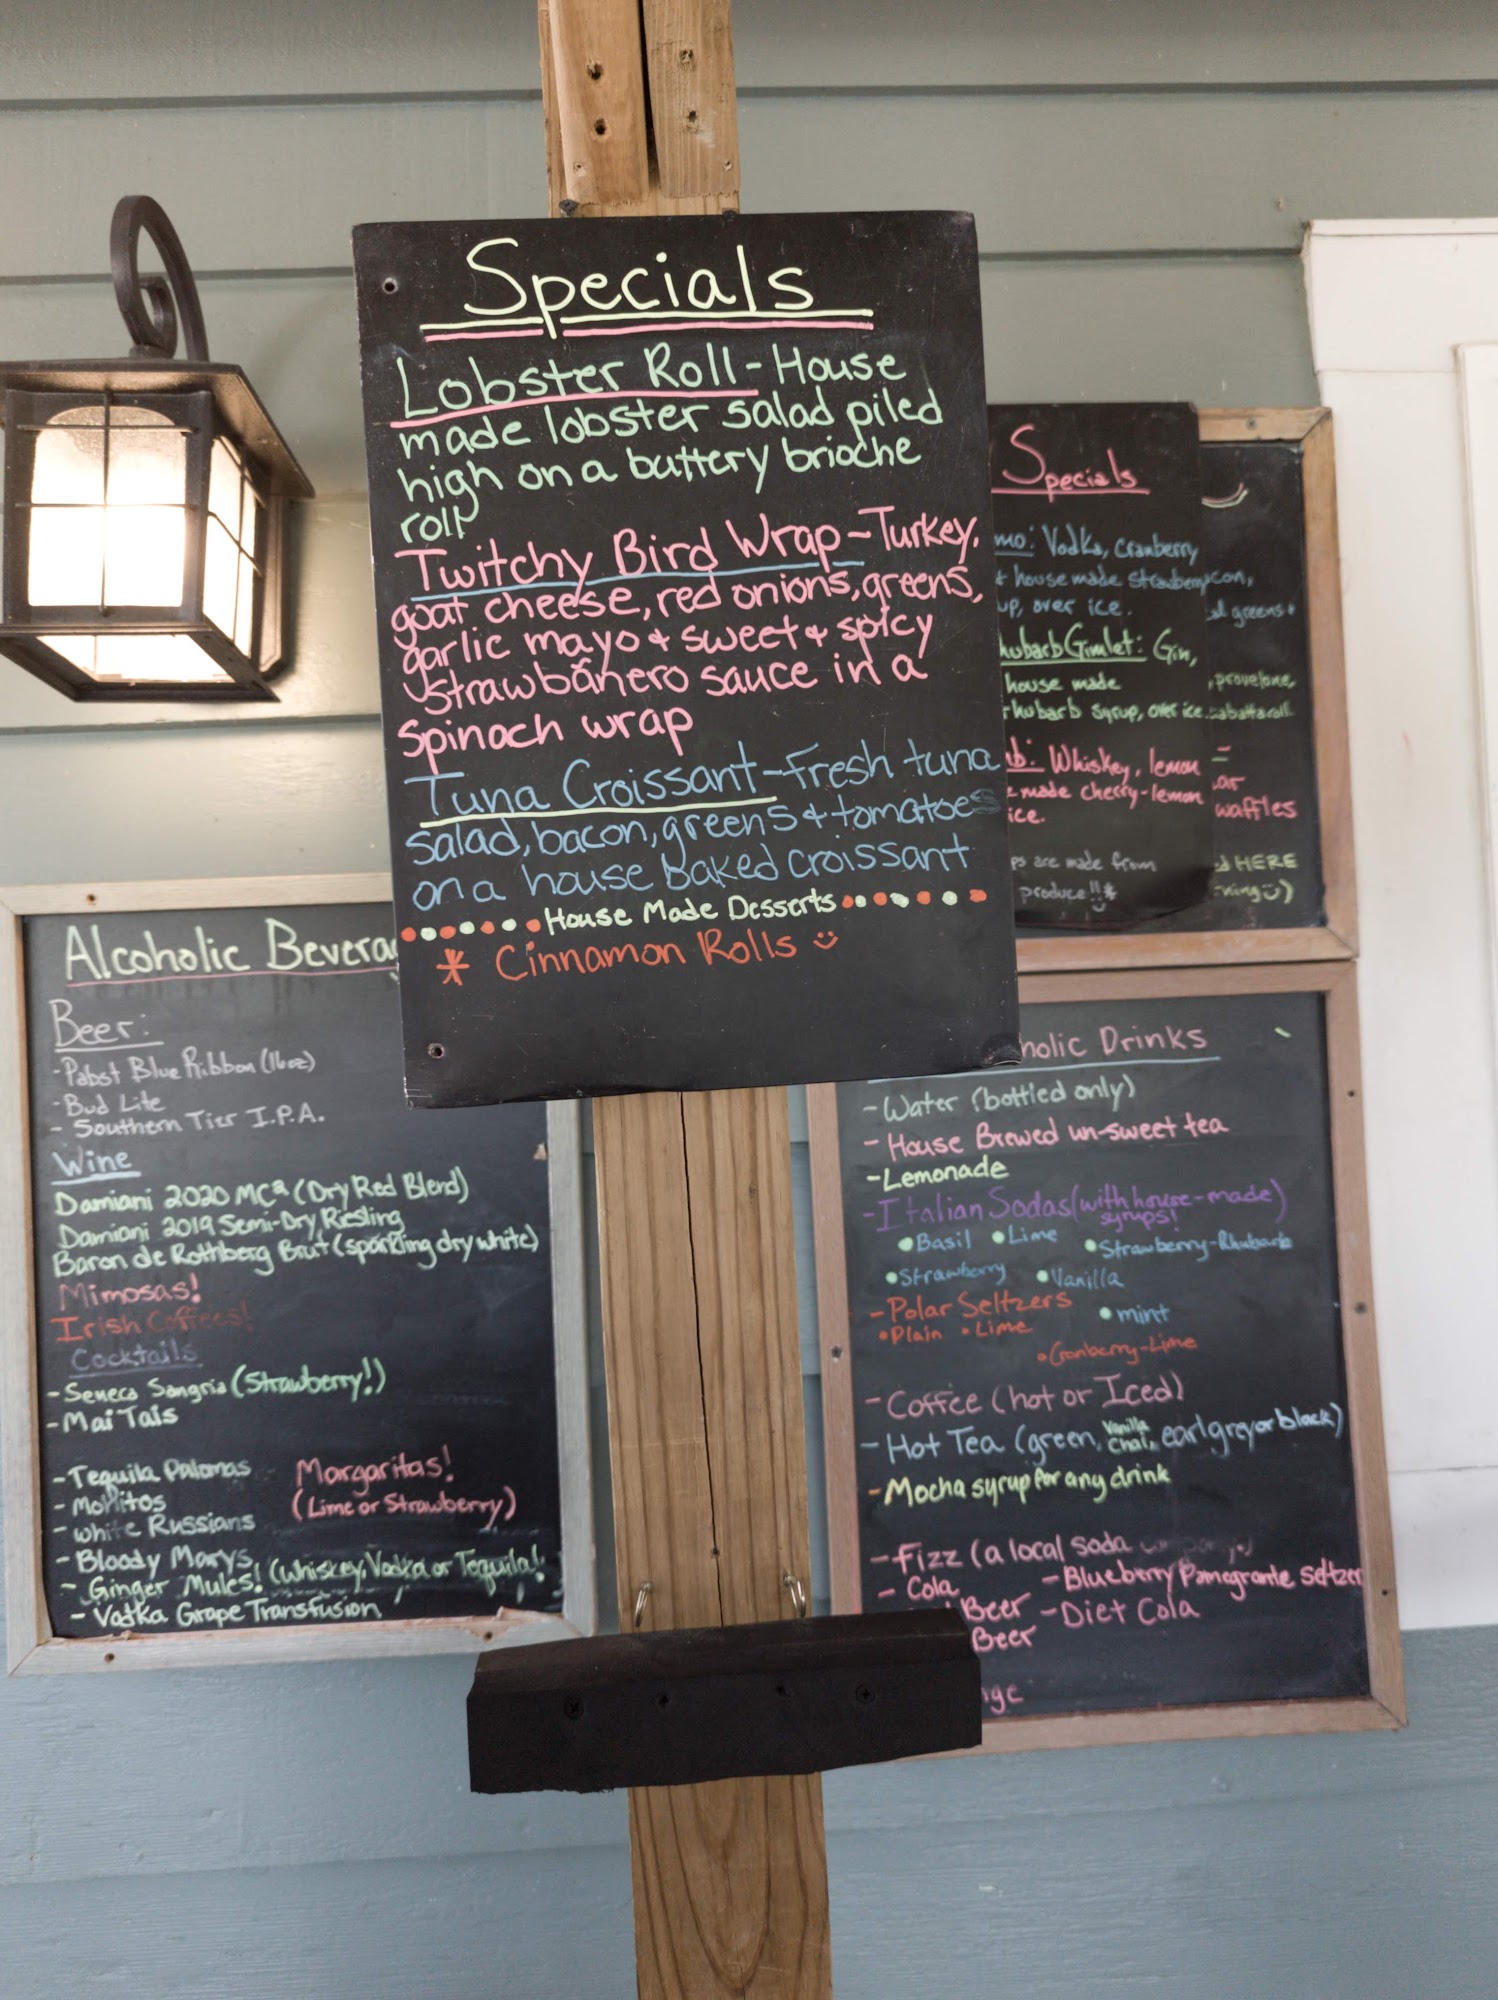 Specials
Lobster Roll - House
made lobster salad piled
high on a buttery brioche
roll
Twitchy Bird Wrap - Turkey,
goat cheese, red onions, greens,
garlic mayo & sweet & spicy
strawbañero sauce in a
spinach wrap
Tuna Croissant - fresh tuna
salad, bacon, greens & tomatoes
on a house baked croissant
House Made Desserts
* Cinnamon Rolls
Specials
mo: Vodka, cranberry
& house made strawberry
up, over ice.
hubarb Gimlet: Gin,
house made
rhubarb syrup, over ice.
mb: Whiskey, lemon
made cherry-lemon
ice.
ps are made from
produce!!*
con,
all greens &
, provelone,
abatta roll
=
ar
waffles
d HERE
king)
Alcoholic Bevera
Beer:
- Pabst Blue Ribbon (16oz)
- Bud Lite
- Southern Tier I.P.A.
Wine
Damiani 2020 MC² (Dry Red Blend)
Damiani 2019 Semi-Dry Riesling
Baron de Rothberg Brut (sparkling dry white)
Mimosas!
Irish Coffees!
Cocktails
- Seneca Sangria (Strawberry!)
- Mai Tais
- Tequila Palomas
- Mojitos
- White Russians
- Bloody Marys
- Ginger Mules! (Whiskey, Vodka or Tequila!
- Vodka Grape Transfusion
Margaritas!
(Lime or Strawberry)
holic Drinks
- Water (bottled only)
- House Brewed un-sweet tea
- Lemonade
- Italian Sodas (with house-made)
syrups!
• Basil • Lime • Strawberry-Rhubarb
• Strawberry • Vanilla
• mint
- Polar Seltzers
• Plain • Lime
• Cranberry-Lime
- Coffee (hot or Iced)
- Hot Tea (green, Vanilla Chai, earl grey or black)
- Mocha syrup for any drink
- Fizz (a local soda company)
- Cola - Blueberry Pomegrante Seltzer
Beer - Diet Cola
Beer
nge